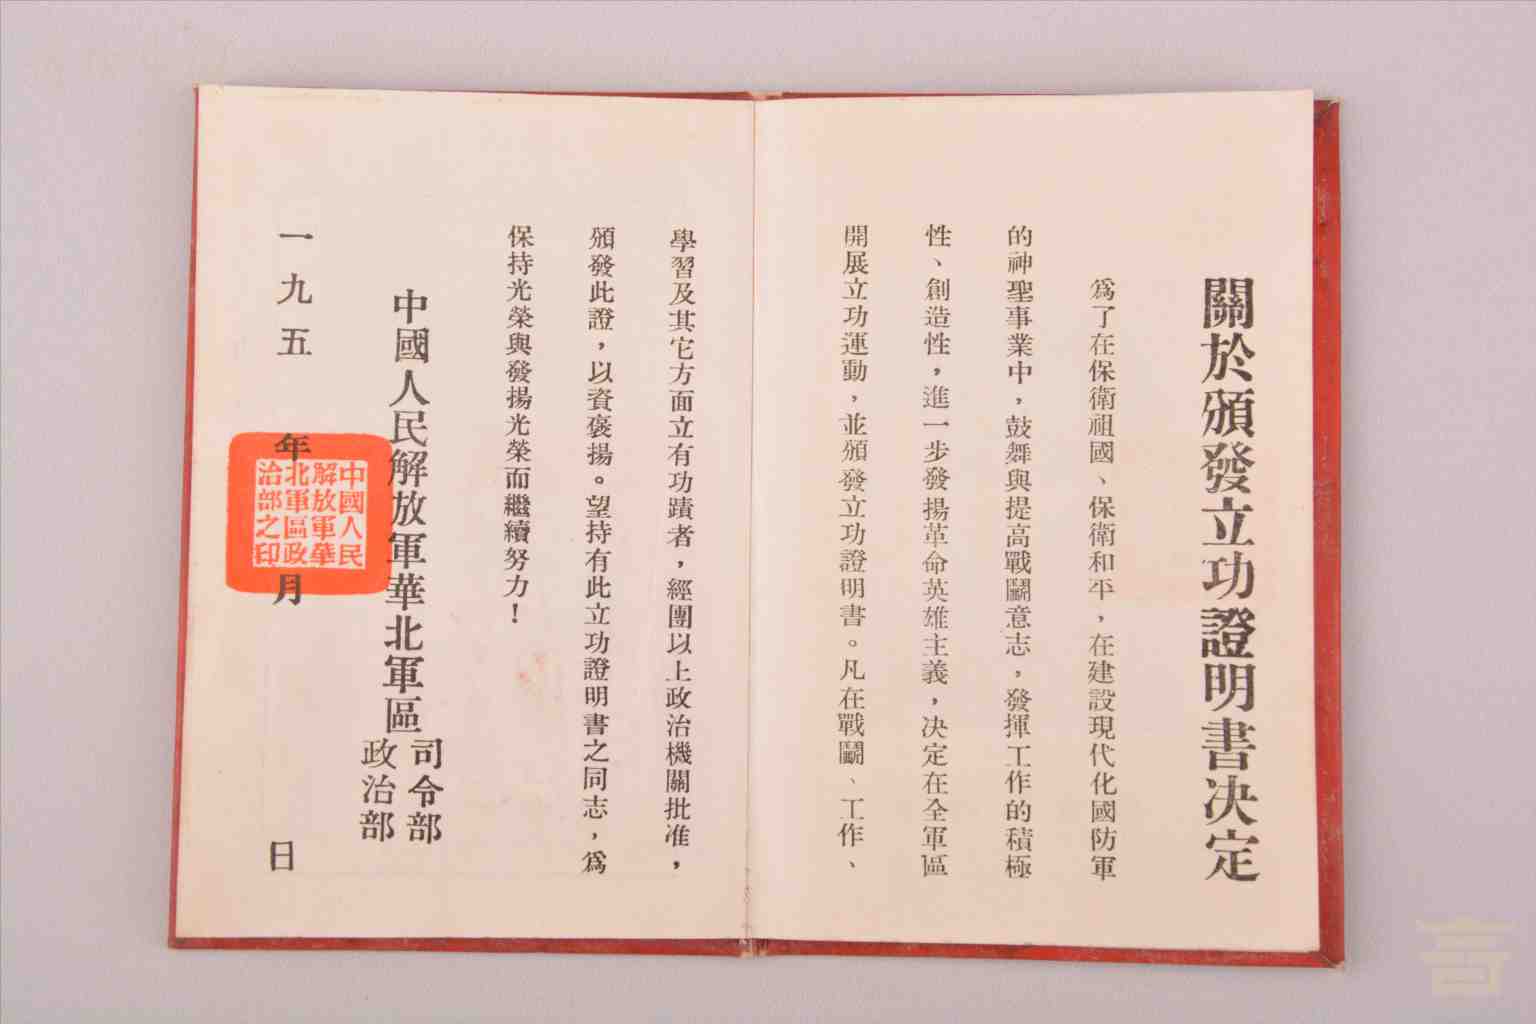 關於頒發立功證明書决定
爲了在保衛祖國、保衛和平，在建設現代化國防軍
的神聖事業中，鼓舞與提高戰鬭意志，發揮工作的積極
性、創造性，進一步發揚革命英雄主義，决定在全軍區
開展立功運動，並頒發立功證明書。凡在戰鬭、工作、
學習及其它方面立有功蹟者，經團以上政治機關批准，
頒發此證，以資褒揚。望持有此立功證明書之同志，爲
保持光榮與發揚光榮而繼續努力！
中國人民解放軍華北軍區
司令部
政治部
一九五 年 月 日
中國人民
解放軍華
北軍區政
治部之印